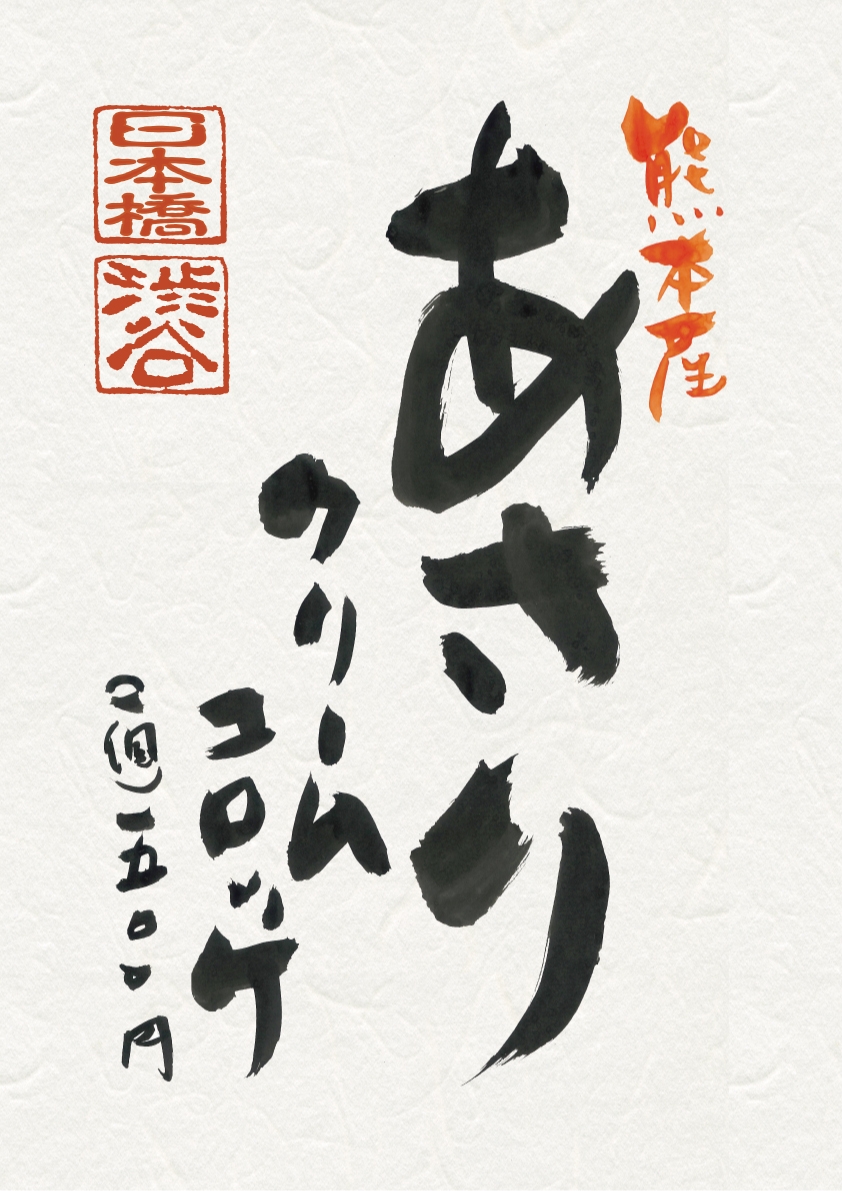 熊本産
あさり
クリーム
コロッケ
(一個)一五〇〇円
日本橋
渋谷